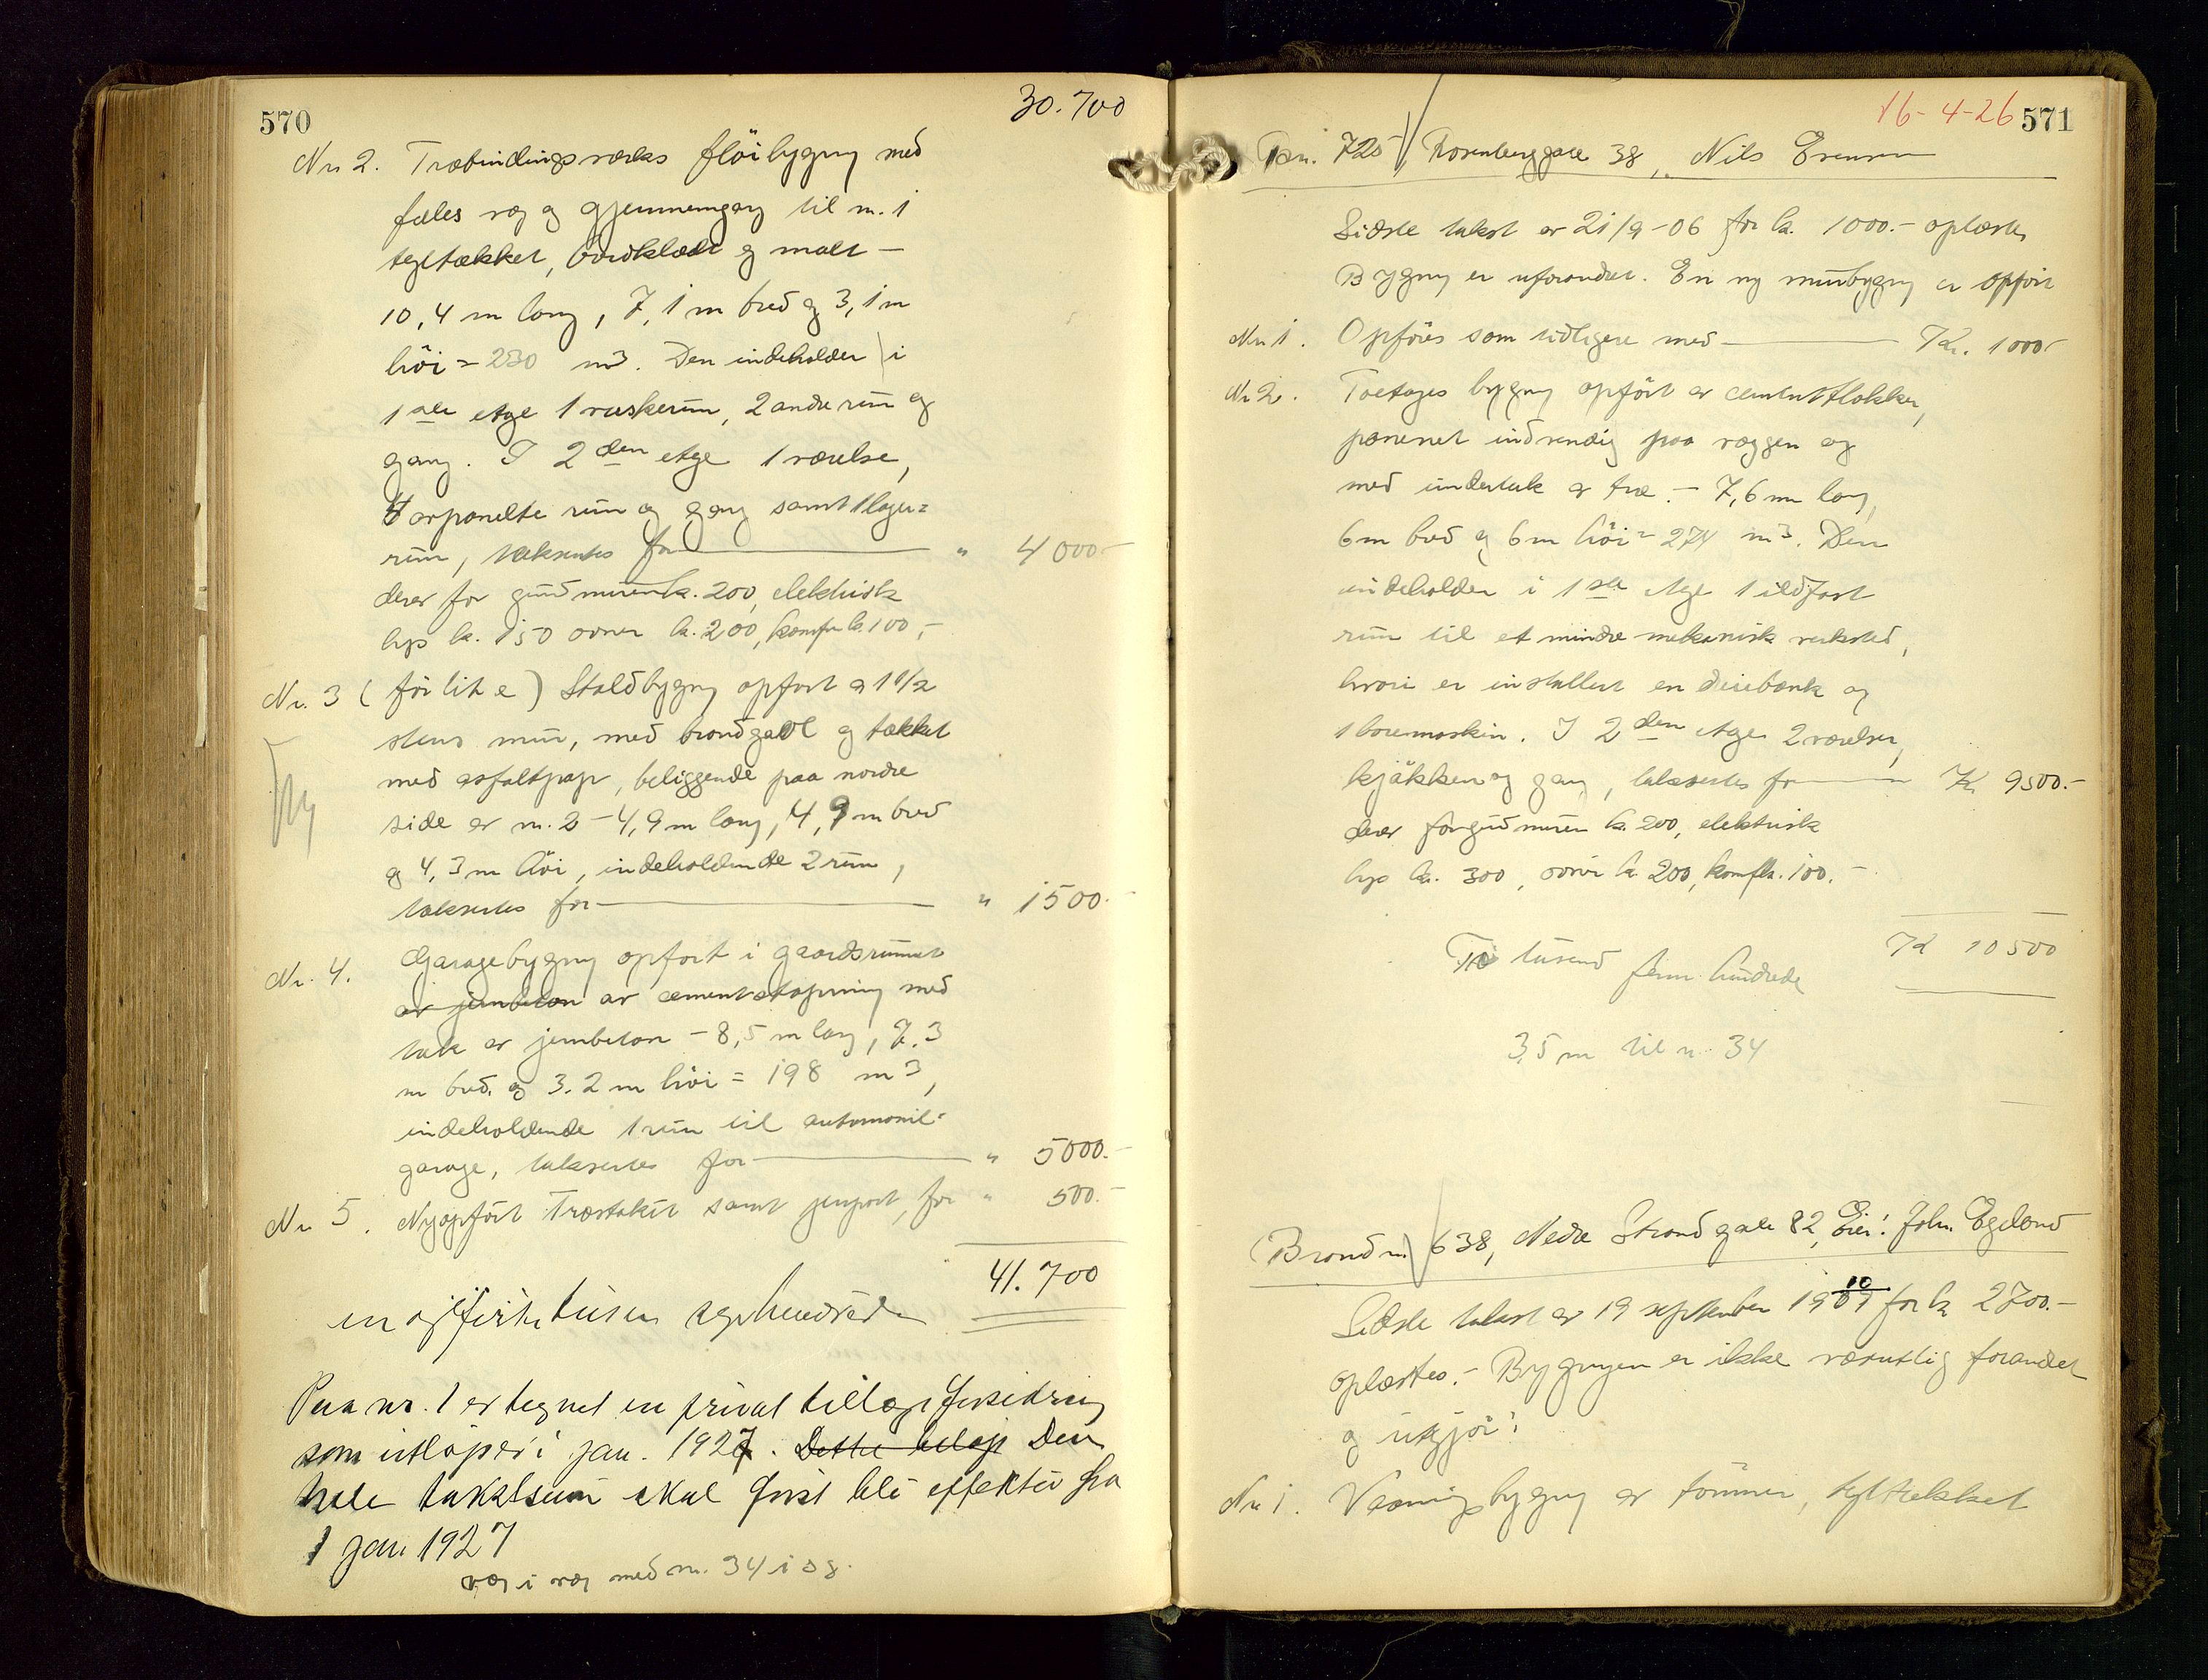 570
30.700
Nr 2. Træbindingsverks flöibygng med
fæles væg og gjennemgang til nr. 1
tegltækket, bordklædt og malt —
10,4 m lang, 7,1 m bred og 3,1 m
höi = 230 m3. Den indeholder i
1ste etage 1 vaskerum, 2 andre rum og
gang. I 2den etage 1 værelse,
4 avpanelte rum og gang samt 1 lager=
rum, taksertes for — " 4000 —
derav for grundmuren k. 200, elektrisk
lys k. 150 ovner k. 200, komfur k. 100,-
Nr. 3 (før lit e) Staldbygng opført av 1 1/2
stens mur, med brandgavl og tækket
med asfaltpap, beliggende paa nordre
side av nr. 2 – 4,9 m lang, 4,9 m bred
og 4,3 m höi, indeholdende 2 rum,
taksertes for — " 1500.-
Nr. 4. Garagebygng opført i gaardsrummet
av jernbeton av cementstøpning med
tak av jernbeton – 8,5 m lang, 7.3
m bred og 3.2 m höi = 198 m3,
indeholdende 1 rum til automobil-
garage, taksertes for — " 5000.-
Nr 5. Nyopført Træstakit samt jernport, for " 500.-
41.700
en og firti tusen syvhundrede
Paa nr. 1 er tegnet en privat tillægsforsikring
som utløper i jan. 1927. Dette beløp Den
hele takstsum skal först bli effektiv fra
1 jan 1927
væg i væg med nr. 34 i sg.
16-4-26 571
Bran. 725 Rosenberggate 38, Nils Evensen
Sidste takst av 21/9-06 for k. 1000.- oplæstes
Bygng er uforandret. En ny murbygng er opfört
Nr 1. Opföres som tidligere med — Kr. 1000-
Nr 2. Toetages bygng opført av cementblokker,
panenet indvendig paa væggen og
med undertak av træ. – 7,6 m lang,
6 m bred og 6 m höi = 274 m3. Den
indeholder i 1ste etage 1 ildfast
rum til et mindre mekanisk verksted,
hvori er installert en dreiebænk og
1 boremaskin. I 2den etage 2 værelser,
kjökken og gang, taksertes for — Kr 9500.-
derav for grundmuren k. 200, elektrisk
lys kr. 300, ovner k. 200, komf k. 100.-
Kr 10500
Ti tusend fem hundrede
3,5 m til nr. 34
(Brand nr.) 638, Nedre Strandgate 82, Eier: John. Egeland
Sidste takst av 19 september 1907 10 for k 2700.-
oplæstes.- Bygngen er ikke væsentlig forandret
og utgjör:
Nr 1. Vaaningsbygng av tömmer, tegltækket